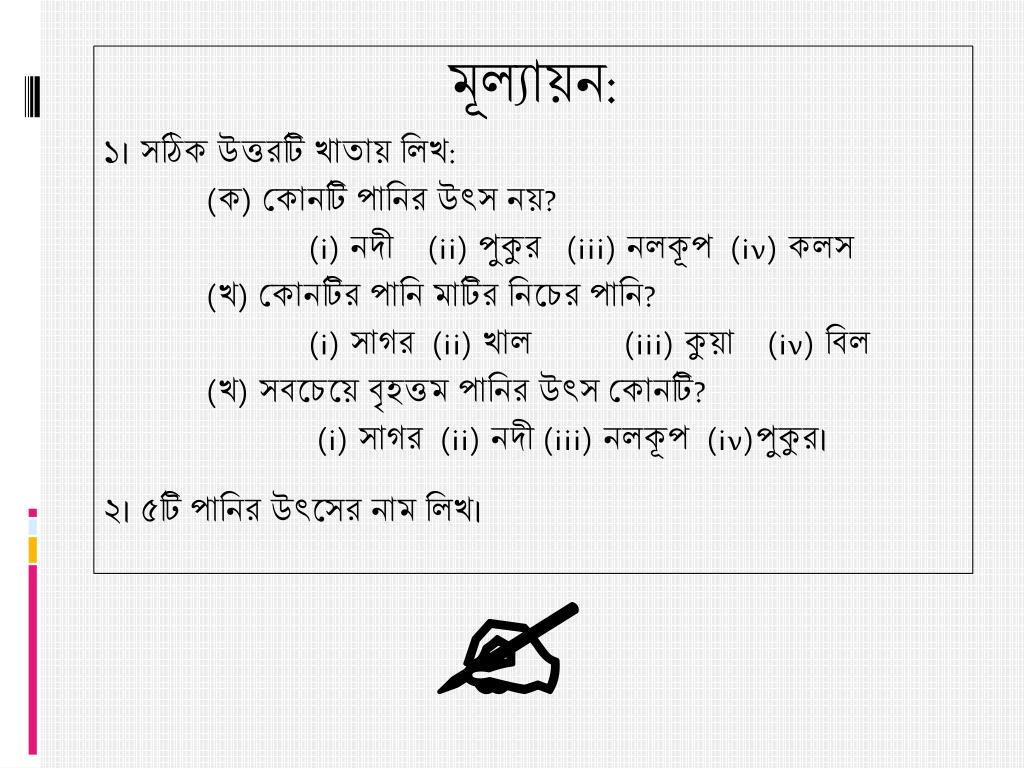 মূল্যায়ন:
১। সঠিক উত্তরটি খাতায় লিখ:
(ক) কোনটি পানির উৎস নয়?
(i) নদী (ii) পুকুর (iii) নলকূপ (iv) কলস
(খ) কোনটির পানি মাটির নিচের পানি?
(i) সাগর (ii) খাল (iii) কুয়া (iv) বিল
(খ) সবচেয়ে বৃহত্তম পানির উৎস কোনটি?
(i) সাগর (ii) নদী (iii) নলকূপ (iv)পুকুর।
২। ৫টি পানির উৎসের নাম লিখ।